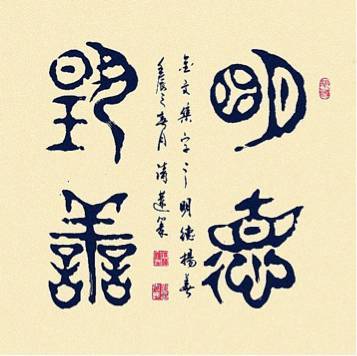 明德
揚善
金文集字之明德揚善
壬辰之春月清蓮篆